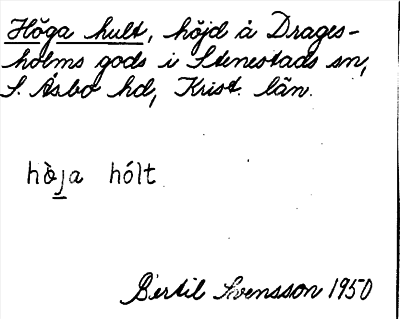 Höga hult, höjd å Drages-
holms gods i Stenestads sn,
S. Åsbo hd, Krist. län.
hò̱ja hólt
Bertil Svensson 1950